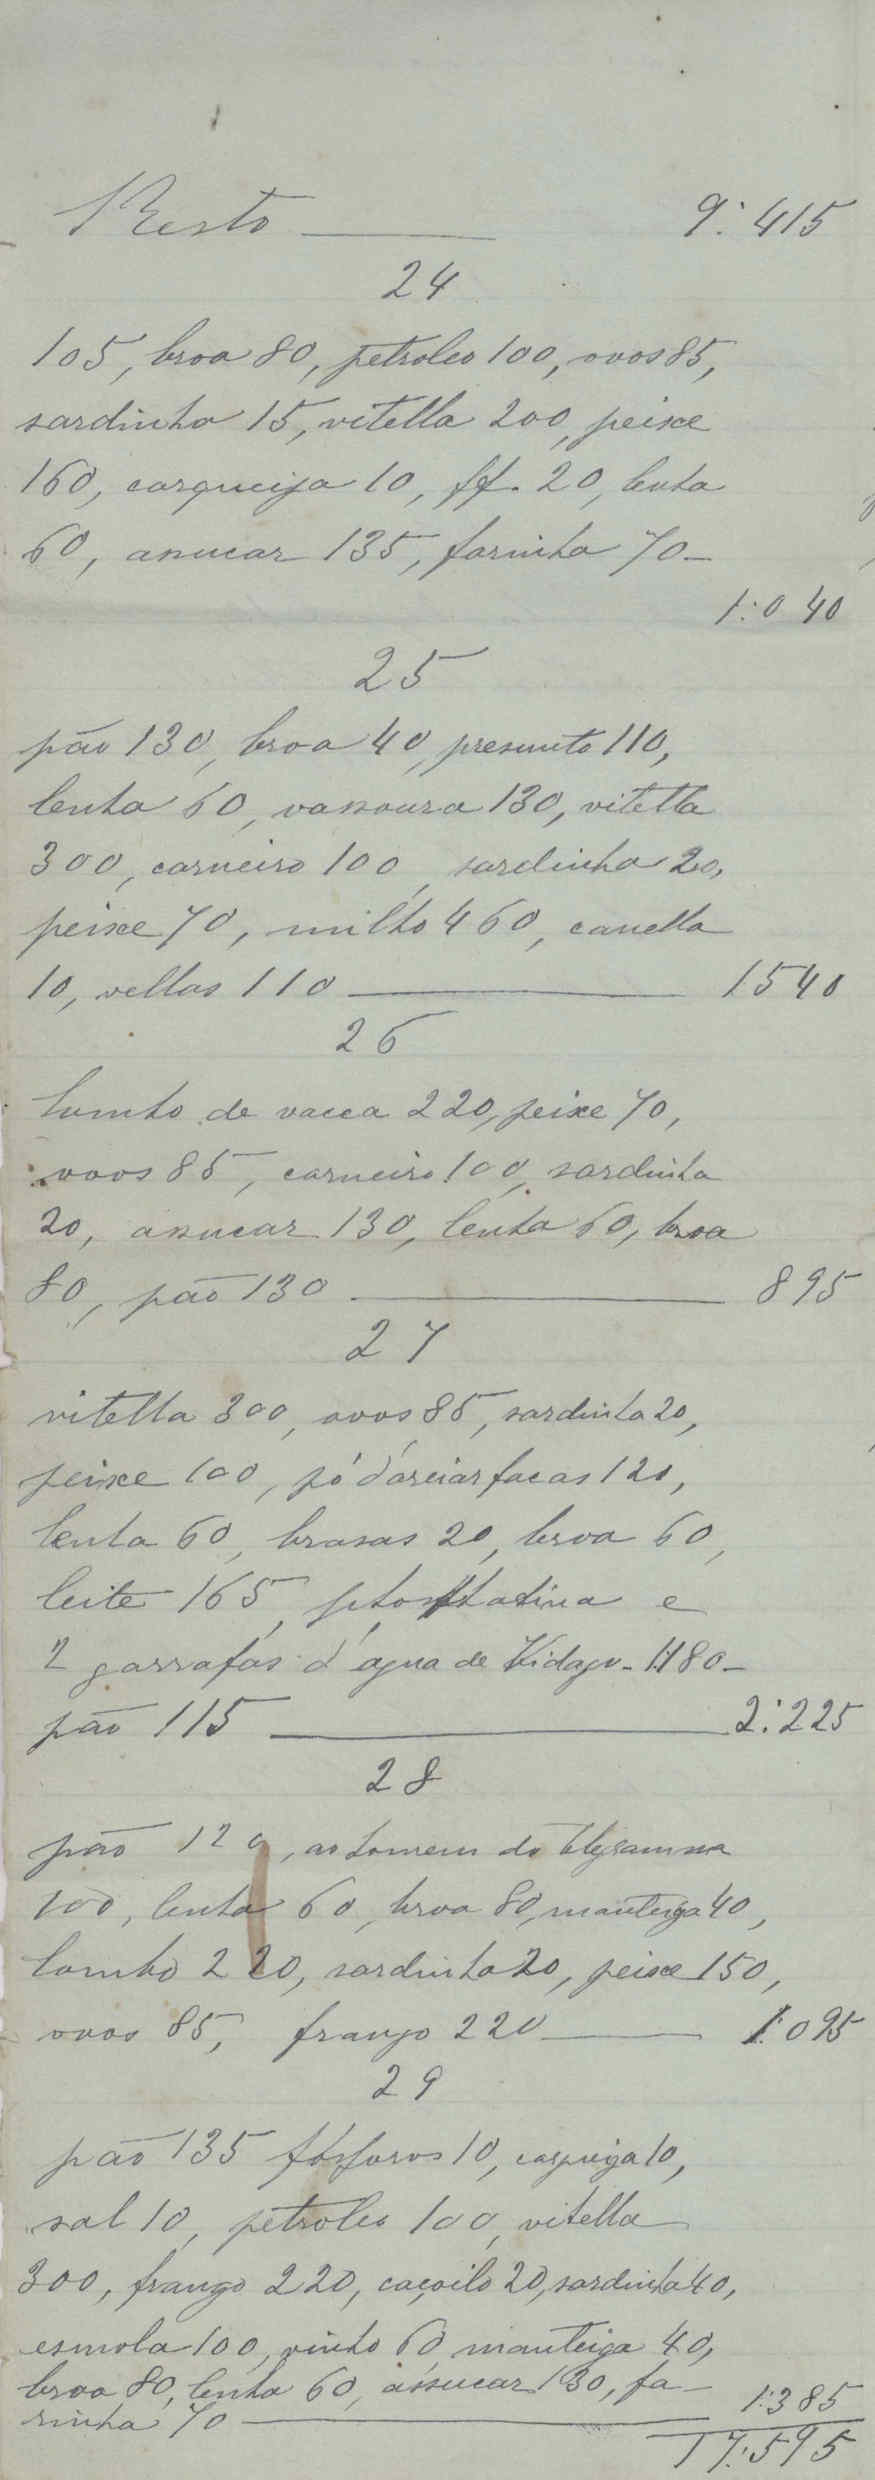 Resto 9:415
24
105, broa 80, petroleo 100, ovos 85,
sardinha 15, vitella 200, peixe
160, carqueija 10, ff. 20, lenha
60, assucar 135, farinha 70
1:040
25
pão 130, broa 40, presunto 110,
lenha 60, vassoura 130, vitella
300, carneiro 100, sardinha 20,
peixe 70, milho 460, canella
10, vellas 110 1540
26
Lombo de vacca 220, peixe 70,
ovos 85, carneiro 100, sardinha
20, assucar 130, lenha 60, broa
80, pão 130 895
27
vitella 300, ovos 85, sardinha 20,
peixe 100, pó d'arear facas 120,
lenha 60, brasas 20, broa 60,
leite 165, e
2 garrafas d'agua de Vidago - 1:180 -
pão 115 2:225
28
pão 120, ao homem do
100, lenha 60, broa 80, manteiga 40,
lombo 220, sardinha 20, peixe 150,
ovos 85, frango 220 1:095
29
pão 135 fósforos 10, carqueija 10,
sal 10, petroleo 100, vitella
300, frango 220, caçoilo 20, sardinha 40,
esmola 100, vinho 60, manteiga 40,
broa 80, lenha 60, assucar 130, fa-
rinha 70 1:385
17:595